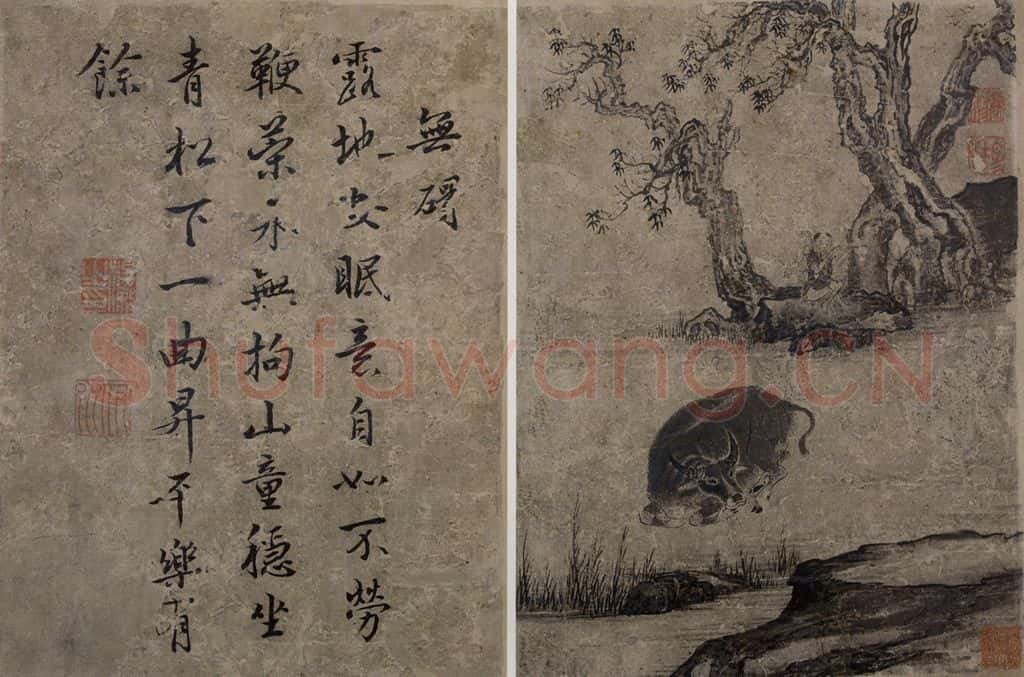 無碍
露地安眠意自如不勞
鞭策永無拘山童穩坐
青松下一曲昇平樂有
餘
Shufawang.CN